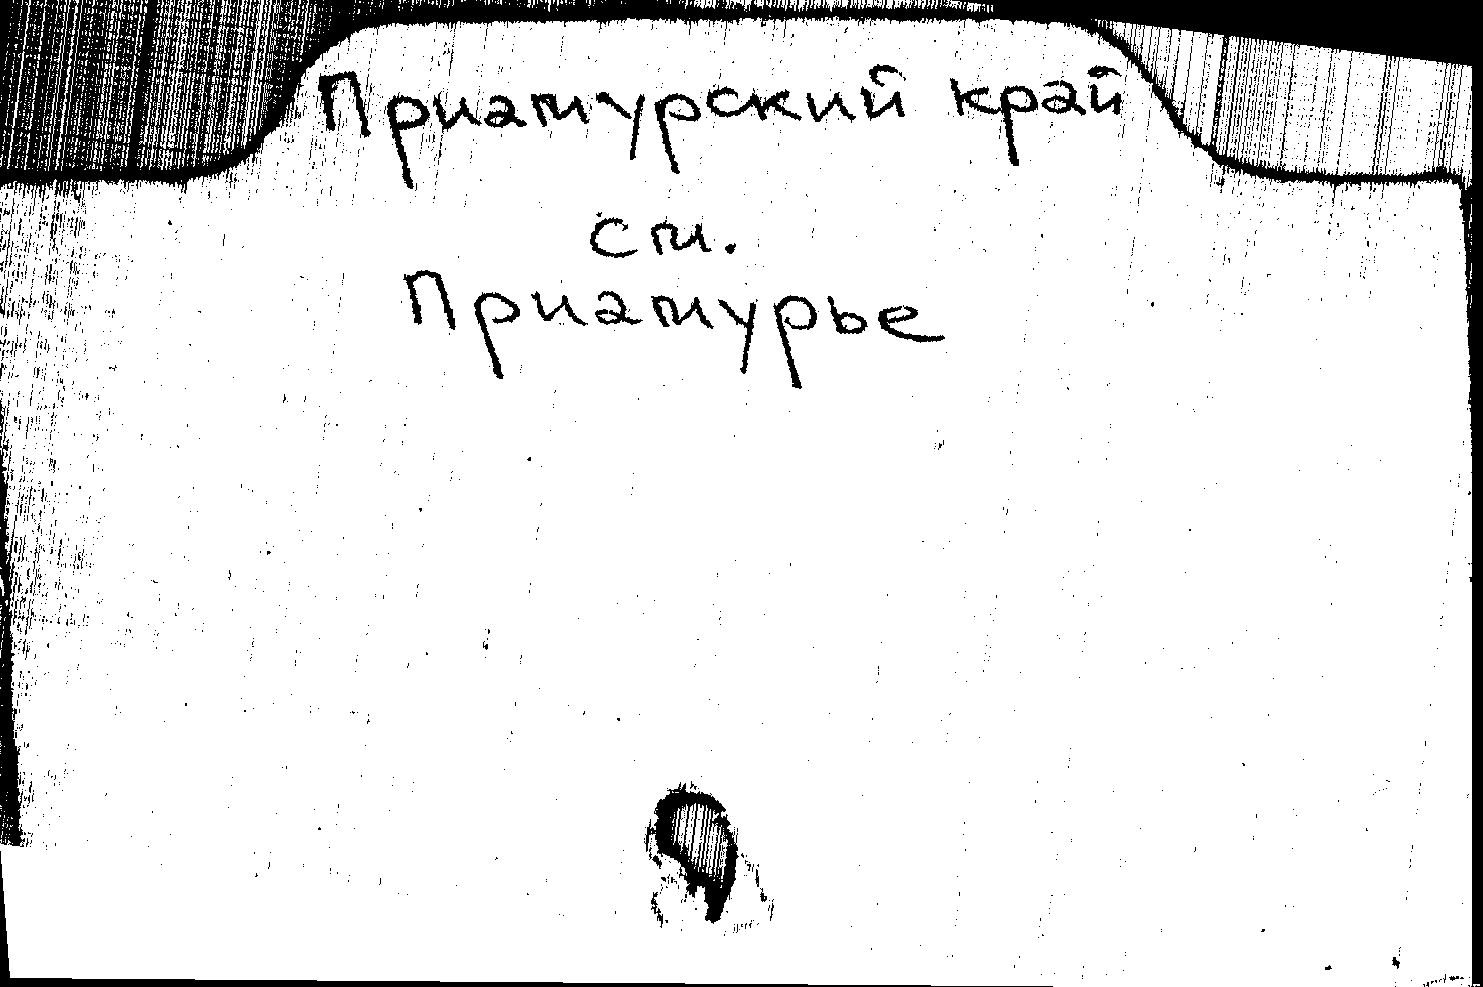 Приамурский край
см.
Приамурье